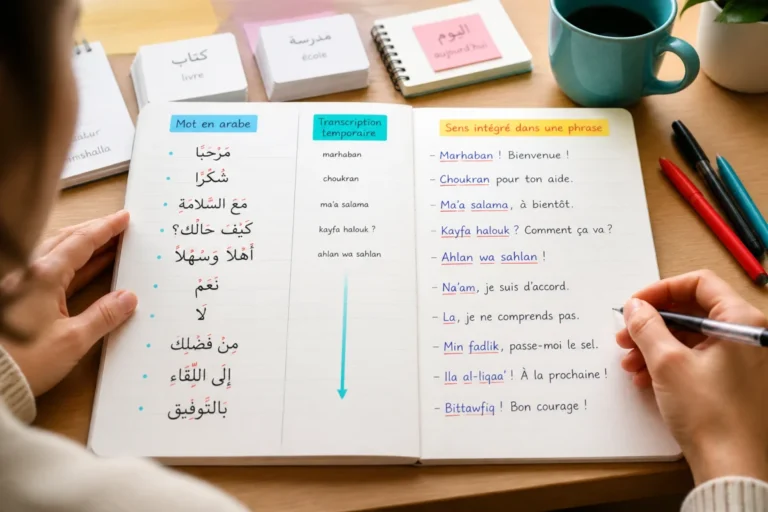 كتاب
livre
مدرسة
école
اليوم
aujourd'hui
inshalla
Mot en arabe
مَرْحَبًا
شُكْرًا
مَعَ السَّلَامَةِ
كَيْفَ حَالُك؟
أَهْلاً وَسَهْلاً
نَعَمْ
لَا
مِنْ فَضْلِك
إِلَى اللِّقَاءِ
بَالتَّوفِيق
Transcription
temporaire
marhaban
choukran
ma'a salama
kayfa halouk ?
ahlan wa sahlan
Sens intégré dans une phrase
– Marhaban ! Bienvenue !
– Choukran pour ton aide.
– Ma'a salama, à bientôt.
– Kayfa halouk ? Comment ça va ?
– Ahlan wa sahlan !
– Na'am, je suis d'accord.
– La, je ne comprends pas.
– Min fadlik, passe-moi le sel.
– Ila al-liqaa' ! À la prochaine !
– Bittawfiq ! Bon courage !